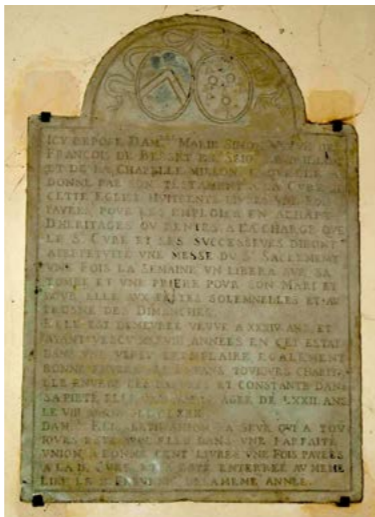 ICY REPOSE DAM.LLE MARIE SIMON VEFVE DE
FRANÇOIS DE BERSET DE SEIG
ET DE LA CHAPELLE MILLON LAQVELLE
DONNE PAR SON TESTAMENT A LA CVRE DE
CETTE EGLISE HVIT CENTS LIVRES VNE FOIS
PAYEES POVR LES EMPLOIER EN ACHAPT
D'HERITAGES OV RENTES A LA CHARGE QVE
LE S.R CVRE ET SES SVCCESSEVRS DIRONT
A PERPETVITÉ VNE MESSE DV S.T SACREMENT
VNE FOIS LA SEMAINE VN LIBERA SVR SA
TOMBE ET VNE PRIERE POVR SON MARI ET
POVR ELLE AVX FESTES SOLEMNELLES ET AV
PROSNE DES DIMANCHES.
ELLE EST DEMEVREE VEVVE A XXXIV ANS ET
AYANT VESCV ANNEES EN CET ESTAT
DANS VNE VERTV EXEMPLAIRE EGALEMENT
BONNE ENVERS SES TOVIOVRS CHARITA
BLE ENVERS LES PAVVRES ET CONSTANTE DANS
SA PIETÉ ELLE AGEE DE LXXII ANS
LE VIII
DAM.LLE ELISABETH SA QVI A TOV
IOVRS ESTÉ AVEC ELLE DANS VNE PARFAITE
VNION A DONNÉ CENT LIVRES VNE FOIS PAYEES
A LAD. CVRE ET A ESTÉ ENTERREE AV MEME
LIEV LE LA MEME ANNÉE.